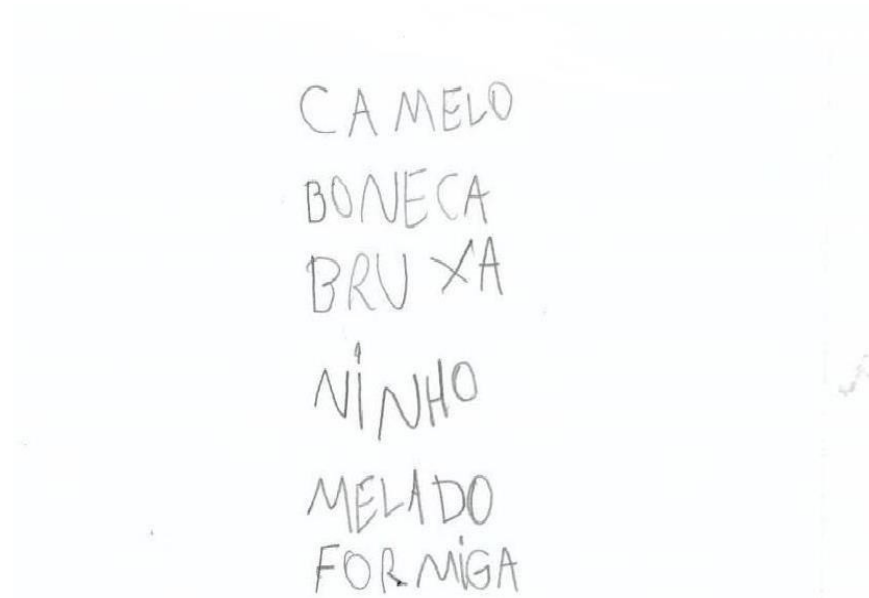 CAMELO
BONECA
BRUXA
NINHO
MELADO
FORMIGA